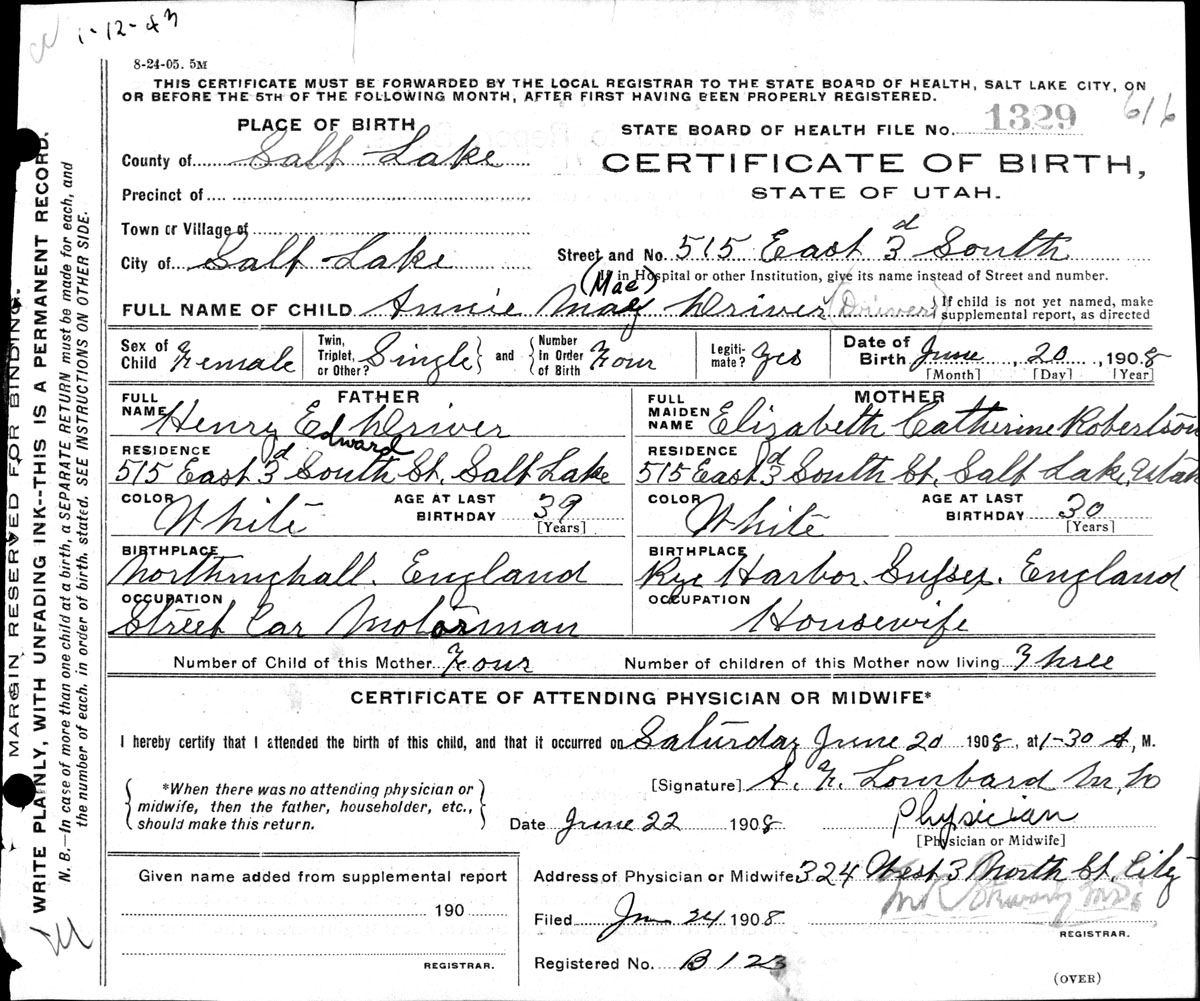 1-12-43
8-24-05. 5M
THIS CERTIFICATE MUST BE FORWARDED BY THE LOCAL REGISTRAR TO THE STATE BOARD OF HEALTH, SALT LAKE CITY, ON
OR BEFORE THE 5TH OF THE FOLLOWING MONTH, AFTER FIRST HAVING BEEN PROPERLY REGISTERED.
616
PLACE OF BIRTH
STATE BOARD OF HEALTH FILE No. 1329
County of Salt Lake
CERTIFICATE OF BIRTH,
STATE OF UTAH.
Precinct of
Town or Village of
City of Salt Lake
Street and No. 515 East 3d South
(If in Hospital or other Institution, give its name instead of Street and number.
(Mae)
FULL NAME OF CHILD Annie May Driver (Driver)
If child is not yet named, make
supplemental report, as directed
Sex of Child Female
Twin, Triplet, or Other? Single and Number in Order of Birth Four
Legitimate? Yes
Date of Birth June, 20, 1908
[Month] [Day] [Year]
FATHER
FULL NAME Henry Edward Driver
RESIDENCE
515 East 3d South St. Salt Lake
COLOR White
AGE AT LAST BIRTHDAY 39
[Years]
BIRTHPLACE
Northinghall. England
OCCUPATION
Street Car Motorman
MOTHER
FULL MAIDEN NAME Elizabeth Catherine Robertson
RESIDENCE
515 East 3d South St. Salt Lake, Utah
COLOR White
AGE AT LAST BIRTHDAY 30
[Years]
BIRTHPLACE
Rye Harbor. Sussex. England
OCCUPATION
Housewife
Number of Child of this Mother Four
Number of children of this Mother now living Three
CERTIFICATE OF ATTENDING PHYSICIAN OR MIDWIFE*
I hereby certify that I attended the birth of this child, and that it occurred on Saturday June 20 1908, at 1-30 A, M.
*When there was no attending physician or
midwife, then the father, householder, etc.,
should make this return.
[Signature] S. F. Lombard M, D
Date June 22 1908
Physician
[Physician or Midwife]
Given name added from supplemental report
190
REGISTRAR.
Address of Physician or Midwife 324 West 3 North St. City
Filed Jun 24 1908
REGISTRAR.
Registered No. B 123
(OVER)
MARGIN RESERVED FOR BINDING.
WRITE PLAINLY, WITH UNFADING INK--THIS IS A PERMANENT RECORD.
N. B.—In case of more than one child at a birth, a SEPARATE RETURN must be made for each, and
the number of each, in order of birth, stated. SEE INSTRUCTIONS ON OTHER SIDE.